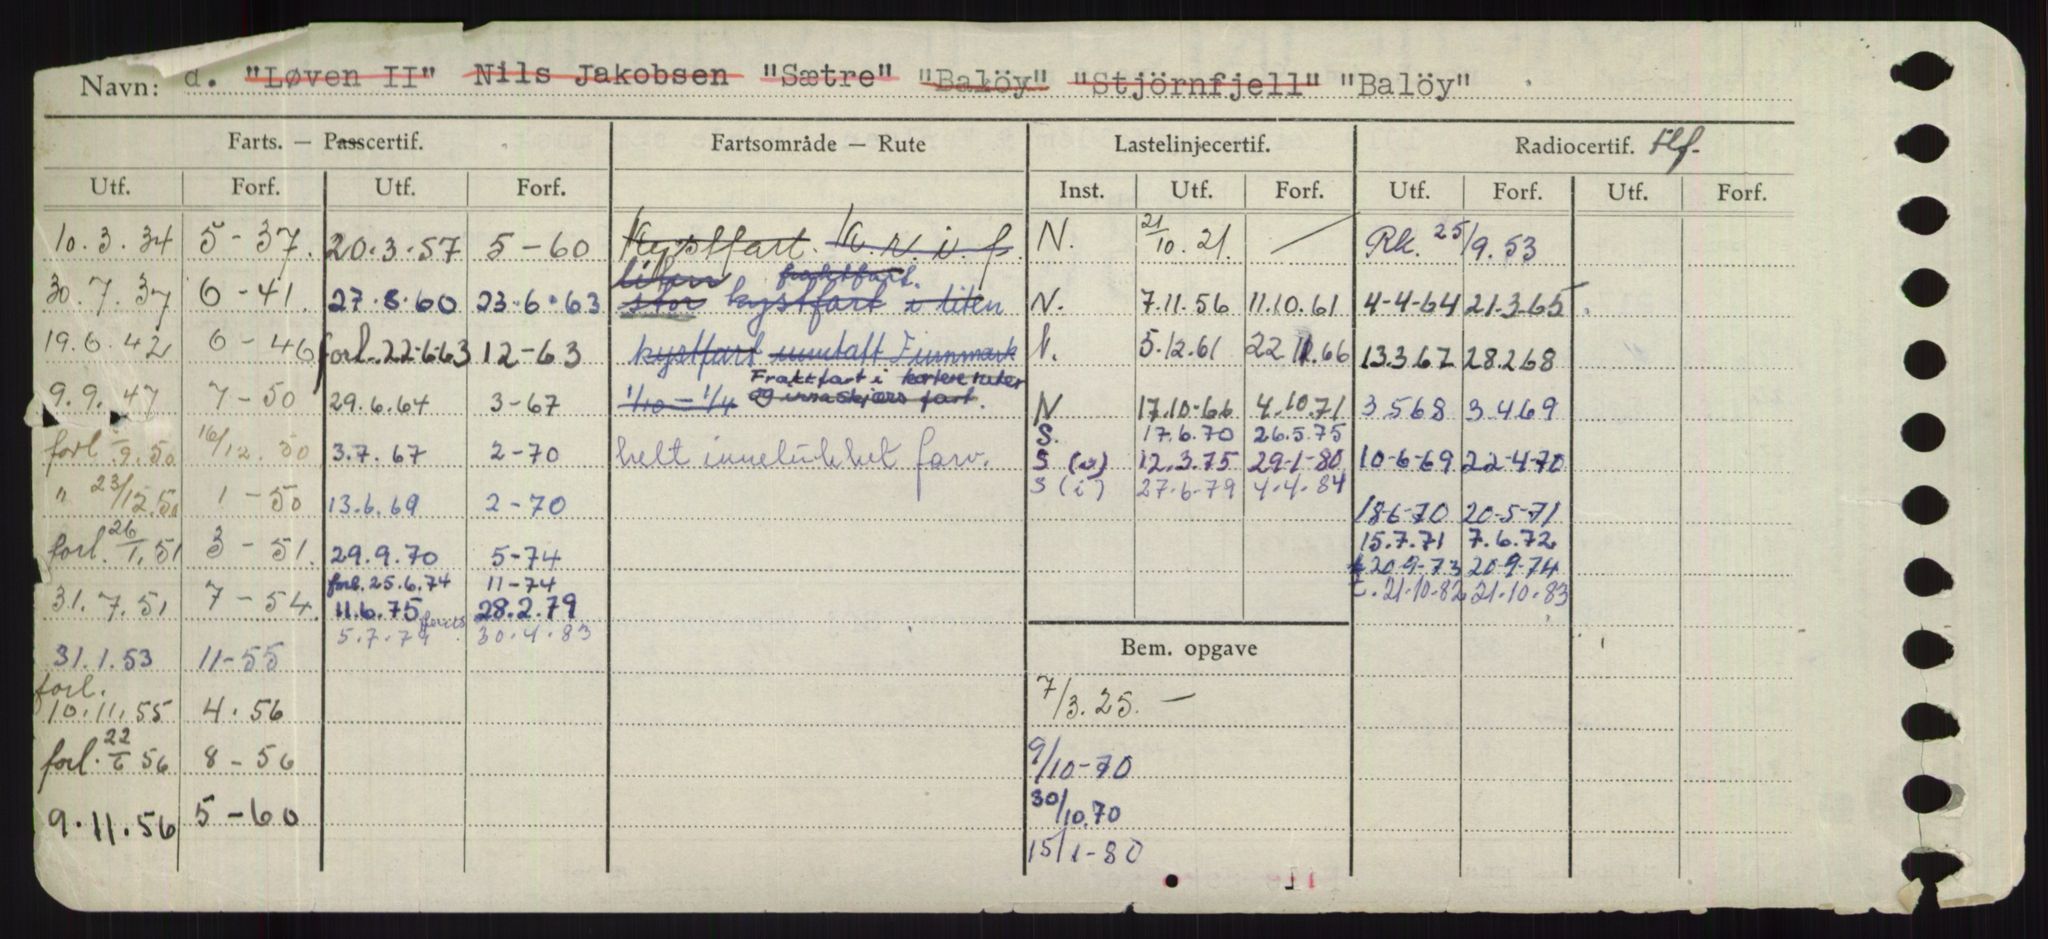 Navn: d. "Løven II" Nils Jakobsen "Sætre" "Balöy" "Stjörnfjell" "Balöy"
Farts. — Passcertif. Fartsområde — Rute Lastelinjecertif. Radiocertif. tlf.
Utf. Forf. Utf. Forf. Inst. Utf. Forf. Utf. Forf. Utf. Forf.
10.3.34 5-37. 20.3.57 5-60 Kystfart. K.r.i.f. N. 21/10.21. — Rk. 25/9.53
liten fraktfart.
30.7.37 6-41. 27.8.60 23.6.63 stor kystfart i liten N. 7.11.56 11.10.61 4-4-64 21.3.65
19.6.42 6-46 forl. 22.6.63 12-63 kystfart unntatt Finnmark N. 5.12.61 22.11.66 13.3.67 28.2.68
Fraktfart i kortere ruter
9.9.47 7-50 29.6.64 3-67 1/10-1/4 og innaskjærs fart. N 17.10.66 4.10.71 3.5.68 3.4.69
S. 17.6.70 26.5.75
forl. 9.50 16/12.50 3.7.67 2-70 helt innelukket farv. S (u) 12.3.75 29-1-80 10-6-69 22-4-70
" 23/12.50 1-50 13.6.69 2-70 S (i) 27.6.79 4.4.84
18-6-70 20-5-71
forl. 26/1.51 3-51. 29.9.70 5-74 15.7.71 7.6.72
forl. 25.6.74 11-74 20-9-73 20-9-74
31.7.51 7-54. 11.6.75 28.2.79 t. 21.10.82 21.10.83
5.7.79 30.4.83
31.1.53 11-55 Bem. opgave
forl.
10.11.55 4.56 7/3.25. —
forl. 22/6 56 8-56 9/10-70
9.11.56 5-60 30/10.70
15/1-80